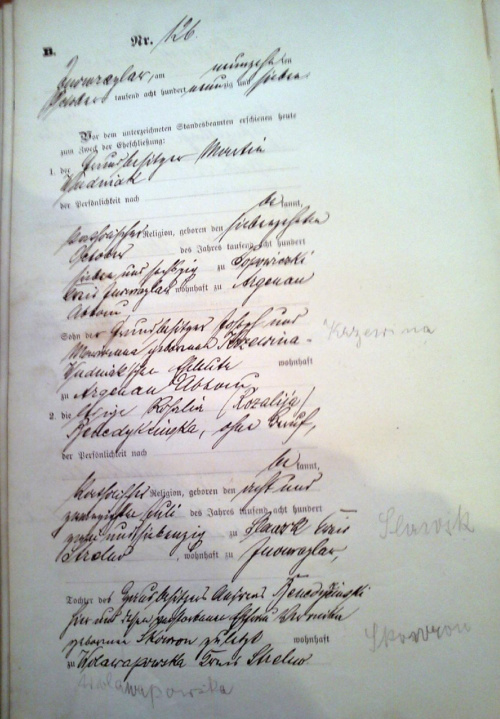 B.
Nr. 126.
Inowrazlaw, am neunzehnten
October tausend acht hundert neunzig und sieben
Vor dem unterzeichneten Standesbeamten erschienen heute
zum Zweck der Eheschließung:
1. der Grundbesitzer Martin
der Persönlichkeit nach
be kannt,
katholischer Religion, geboren den siebenzehnten
October des Jahres tausend acht hundert
sieben und sechzig zu
Kreis Inowrazlaw wohnhaft zu Argenau
Abbau
Sohn der Grundbesitzer Josef und
geborenen Krzewina-
Eheleute wohnhaft
zu Argenau Abbau
2. die Rosalie (Rozalija)
Benedykcinska, ohne Beruf,
der Persönlichkeit nach
be kannt,
katholischer Religion, geboren den acht und
zwanzigsten Juli des Jahres tausend acht hundert
und siebenzig zu Slawsk Kreis
Strelno, wohnhaft zu Inowrazlaw,
Tochter des Grundbesitzers Andreas
und dessen verstorbenen Ehefrau
geborenen Skowron zuletzt wohnhaft
zu Kreis Strelno
Krzewina
Slawsk
Skowron